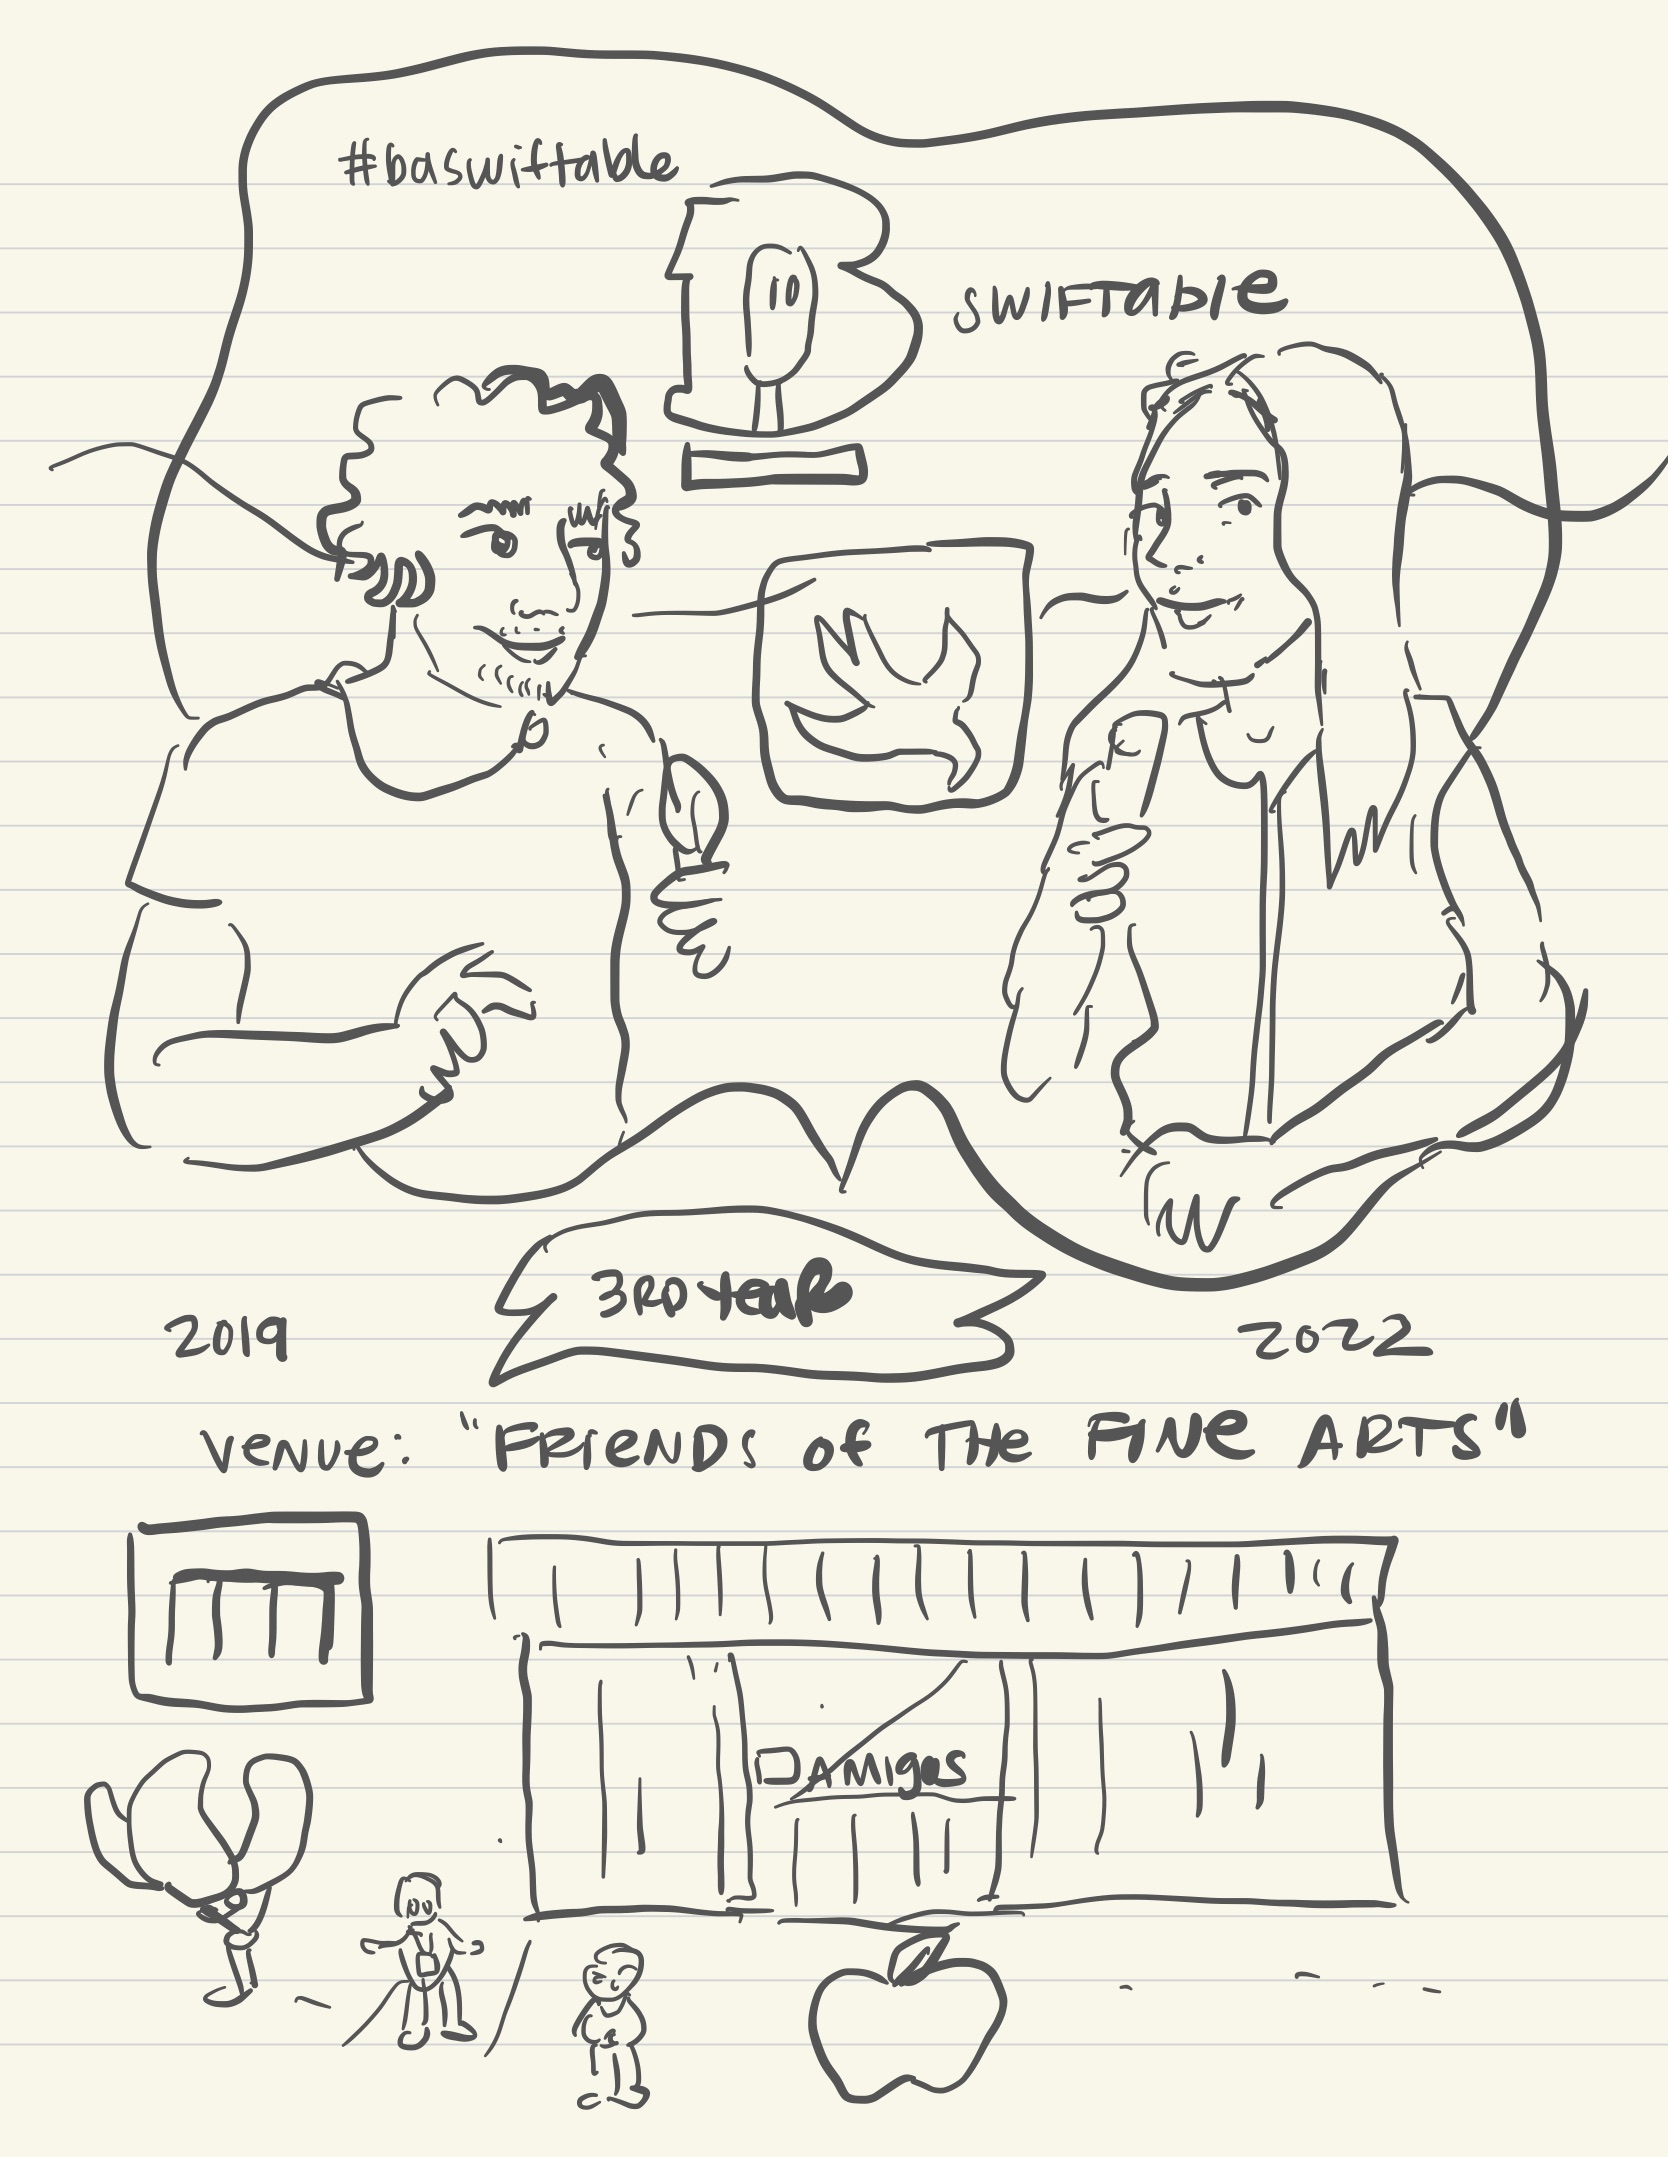 #baswiftable
10
swiftable
3RD year
2019
2022
venue: "FRIENDS of THE FINE ARTS"
DAmigos